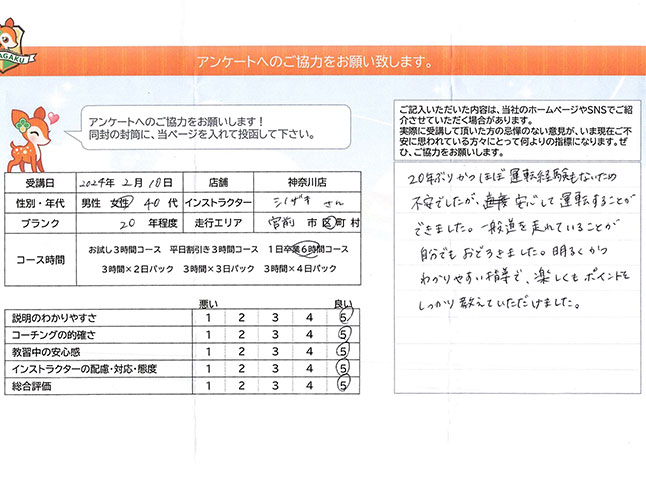 AGAKU
アンケートへのご協力をお願い致します。
アンケートへのご協力をお願いします！
同封の封筒に、当ページを入れて投函して下さい。
受講日 2024年 2月 18日 店舗 神奈川店
性別・年代 男性 女性 40代 インストラクター シノザキ さん
ブランク 20年程度 走行エリア 宮前 市区町村
コース時間 お試し3時間コース 平日割引き3時間コース 1日卒業6時間コース
3時間×2日パック 3時間×3日パック 3時間×4日パック
悪い 良い
説明のわかりやすさ 1 2 3 4 5
コーチングの的確さ 1 2 3 4 5
教習中の安心感 1 2 3 4 5
インストラクターの配慮・対応・態度 1 2 3 4 5
総合評価 1 2 3 4 5
ご記入いただいた内容は、当社のホームページやSNSでご紹
介させていただく場合があります。
実際に受講して頂いた方の忌憚のない意見が、いま現在ご不
安に思われている方々にとって何よりの指標になります。ぜ
ひ、ご協力をお願いします。
20年ぶりかつほぼ運転経験もないため
不安でしたが、安心して運転することが
できました。一般道を走れていることが
自分でもおどろきました。明るくかつ
わかりやすい指導で、楽しくもポイントを
しっかり教えていただけました。